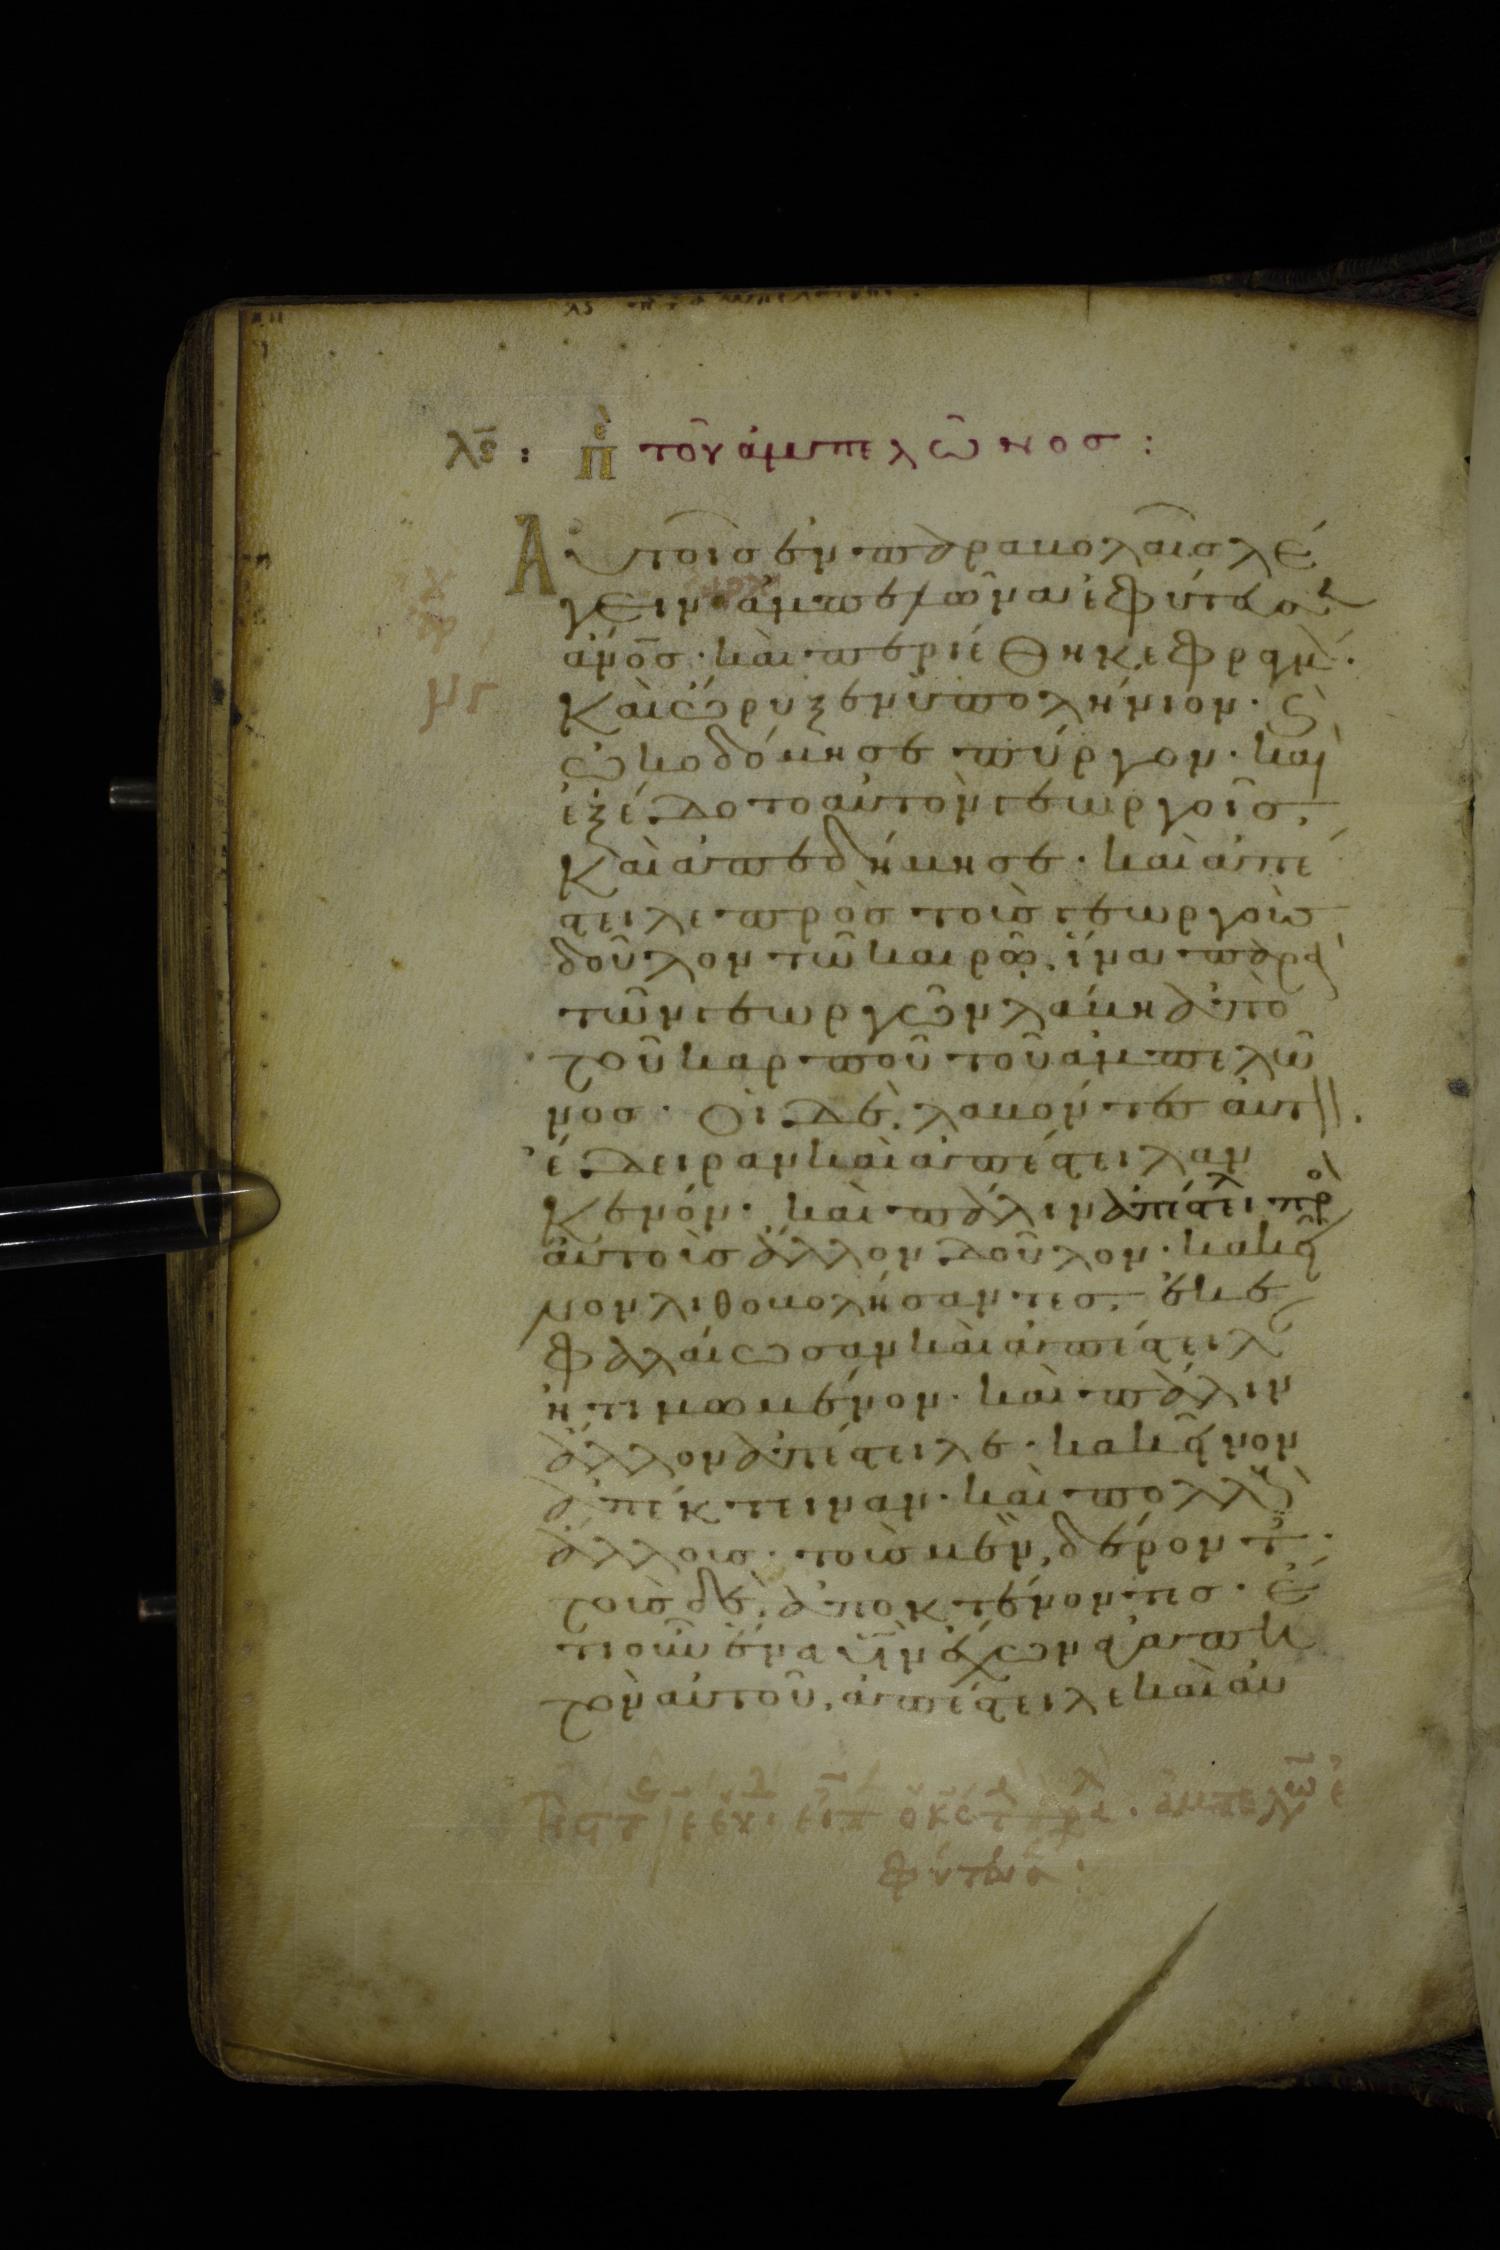 λϛ : πε τοῦ ἀμπελῶνος :
Αὐτοῖς ἐν παραβολαῖς λέ
γειν· ἀμπελῶνα ἐφύτευσεν
ἄνος· καὶ περιέθηκε φραγμ̀.
Καὶ ὤρυξεν ὑπολήνιον· ϗ
ὠκοδόμησε πύργον· καὶ
ἐξέδοτο αὐτὸν γεωργοῖς.
Καὶ ἀπεδήμησε· καὶ ἀπέ
στειλε πρὸς τοὺς γεωργοὺς
δοῦλον τῶ καιρῶ, ἵνα παρὰ
τῶν γεωργῶν λάβη ἀπὸ
τοῦ καρποῦ τοῦ ἀμπελῶ
νος· Οἱ δὲ, λαβόντες αὐτ\\.
ἔδειραν καὶ ἀπέστειλαν
Κενόν· καὶ πάλιν ἀπέστειλ πρ
αὐτοὺς ἄλλον δοῦλον· κακεῖ
νον λιθοβολήσαντες, ἐκε
φαλαίωσαν καὶ ἀπέστειλ
ἠτιμωμένον· καὶ πάλιν
ἄλλον ἀπέστειλε· κακεῖνον
ἀπέκτειναν· καὶ πολλοὺς
ἄλλους· τοὺς μὲν, δέροντ·
τοὺς δὲ, ἀποκτένοντες· ἔ
τι οὖν ἕνα υἱὸν ἔχων ἀγαπη
τὸν αὐτοῦ, ἀπέστειλε καὶ αὐ